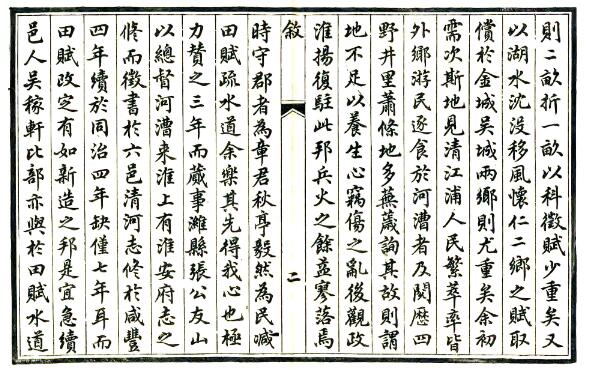 則二畝折一畝以科徵賦少重矣又
以湖水沈没移風懷仁二鄉之賦取
償於金城吳城兩鄉則尤重矣余初
需次斯地見清江浦人民繁萃率皆
外鄉游民逐食於河漕者及閱歷四
野井里蕭條地多蕪薉詢其故則謂
地不足以養生心竊傷之亂後觀政
淮揚復駐此邦兵火之餘益寥落焉
敘
二
時守郡者為章君秋亭毅然為民減
田賦疏水道余樂其先得我心也極
力贊之三年而蕆事濰縣張公友山
以總督河漕来淮上有淮安府志之
修而徵書於六邑清河志修於咸豐
四年續於同治四年缺僅七年耳而
田賦改定有如新造之邦是宜急續
邑人吳稼軒比部亦與於田賦水道